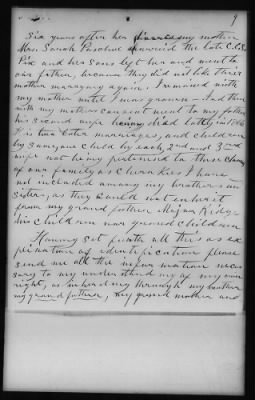 9
Six years after her divorce my mother
Mrs. Sarah Paschal married the late C. S.
Pix and her sons by her and went to
our father, because they did not like their
mother marrying again. I remained with
my mother until I was grown and then
with my mothers consent went to my father
his second wife having died lately in 1866
His two later marriages, and children
by same one child by each, 2nd and 3rd
wife not being pertained to these claims
of our family as Cherokees I have
not included among my brothers and
sisters, as they would not inherit
from my grand father Major Ridge
his children nor grand children
Having set forth all this as ex
planation of identification please
send me all the information neces
sary to my understanding of my own
right, as inherited through my brother
my grand father, my grand mother and